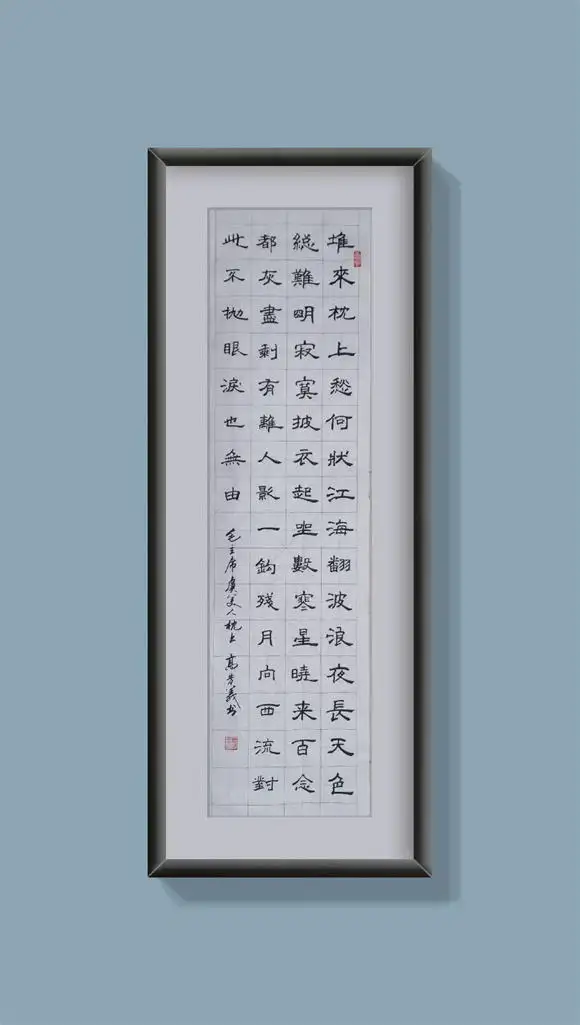 堆來枕上愁何狀江海翻波浪夜長天色
總難明寂寞披衣起坐數寒星曉来百念
都灰盡剩有離人影一鈎殘月向西流對
此不抛眼淚也無由
毛主席虞美人枕上